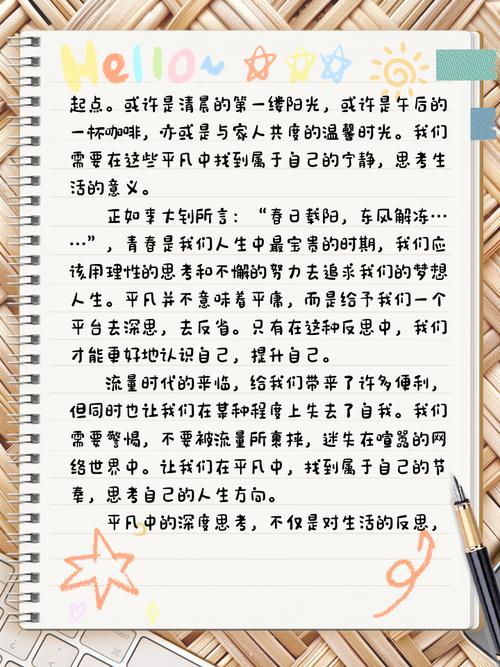 Hello~
起点。或许是清晨的第一缕阳光，或许是午后的
一杯咖啡，亦或是与家人共度的温馨时光。我们
需要在这些平凡中找到属于自己的宁静，思考生
活的意义。
正如李大钊所言：“春日载阳，东风解冻…
…”，青春是我们人生中最宝贵的时期，我们应
该用理性的思考和不懈的努力去追求我们的梦想
人生。平凡并不意味着平庸，而是给予我们一个
平台去深思，去反省。只有在这种反思中，我们
才能更好地认识自己，提升自己。
流量时代的来临，给我们带来了许多便利，
但同时也让我们在某种程度上失去了自我。我们
需要警惕，不要被流量所裹挟，迷失在喧嚣的网
络世界中。让我们在平凡中，找到属于自己的节
奏，思考自己的人生方向。
平凡中的深度思考，不仅是对生活的反思，